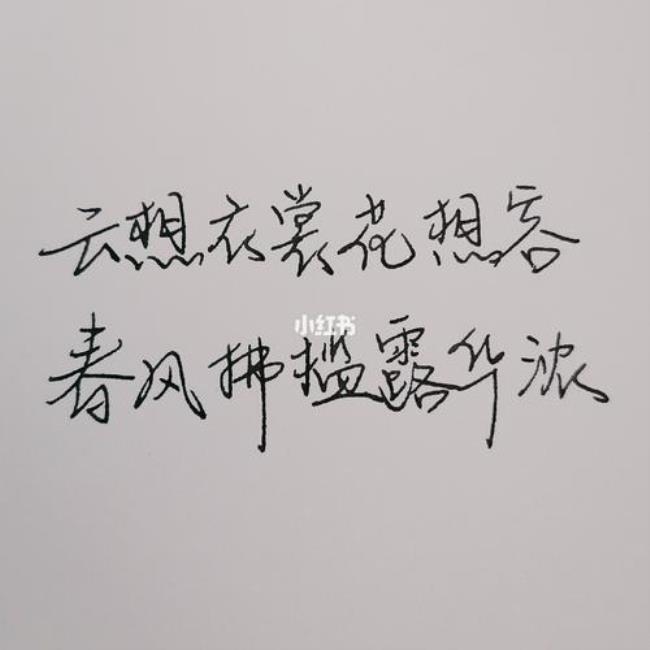 云想衣裳花想容
小红书
春风拂槛露华浓